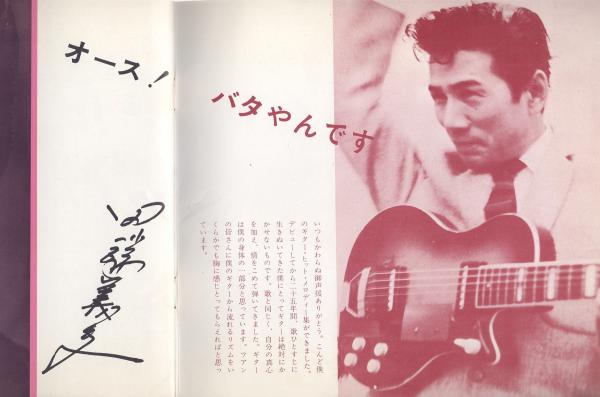 オース!
バタやんです
いつもかわらぬ御声援ありがとう。こんど僕
のギター・ヒット・メロディー集ができました。
デビューしてから二十五年間、歌ひとすじに
生きぬいてきた僕にとってギターは絶対にか
かせないものです。歌と同じく、自分の真心
を加え、情をこめて弾いてきました。ギター
は僕の身体の一部分と思っています。フアン
の皆さんに僕のギターから流れるリズムをい
くらかでも胸に感じとってもらえればと思っ
ています。
田端義夫